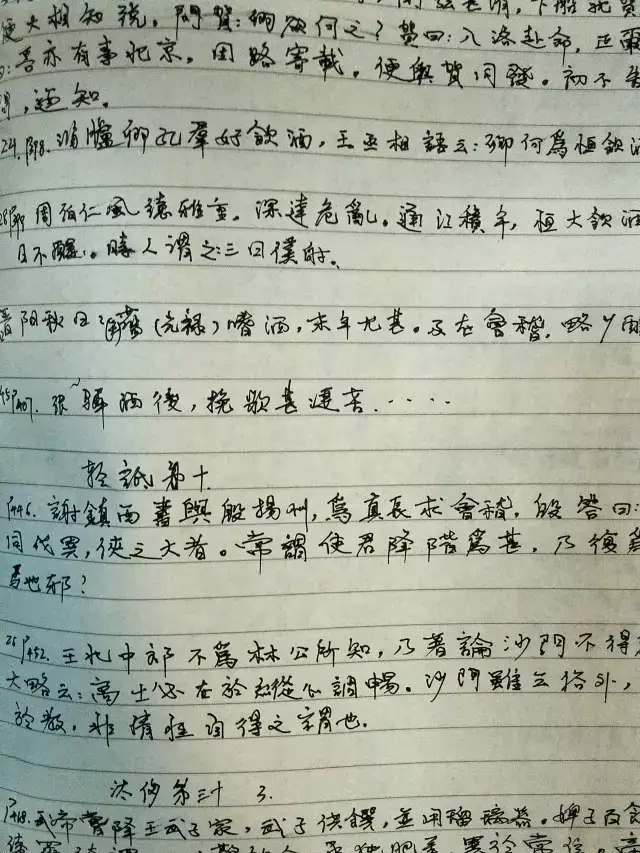 便大相知說。問賀：卿欲何之？賀曰：入洛赴命，正爾
曰：吾亦有事北京。因路寄載。便與賀同發。初不告
，迺知。
24. P398. 鴻臚卿孔羣好飲酒，王丞相語云：卿何為恒飲酒
28 P399 周伯仁風德雅重。深達危亂。過江積年，恒大飲酒
日不醒。時人謂之三日僕射。
晉陽秋曰：(光祿)嗜酒，末年尤甚。及在會稽，略少
45 P407. 張驎酒後，挽歌甚淒苦．．．．．
輕詆第十
P446. 謝鎮西書與殷揚州，為真長求會稽，殷答曰：
同代異，俠之大者。常謂使君降階為甚，乃復為
為也邪？
25 P452. 王北中郎不為林公所知，乃著論沙門不得為
大略云：高士必在於縱心調暢。沙門雖云俗外，
於教，非情性自得之謂也．
汰侈第三十 3.
P468. 武帝嘗降王武子家，武子供饌，並用瑠璃器。婢子百餘